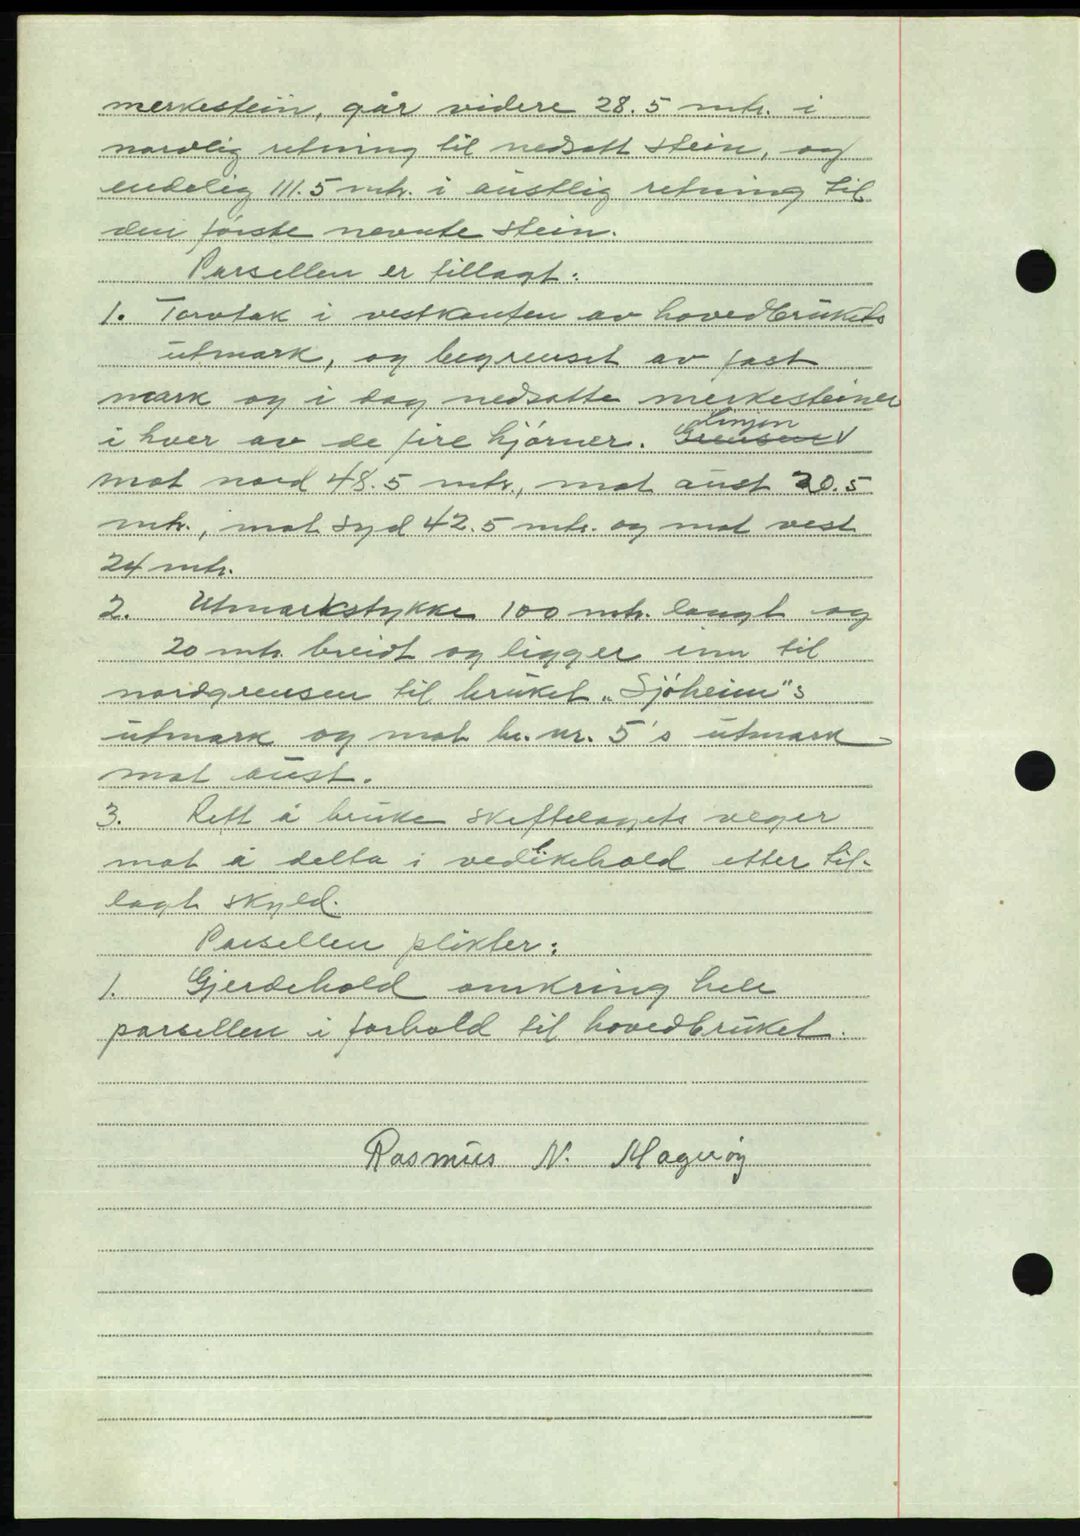 merkestein, går videre 28.5 mtr. i
nordlig retning til nedsatt stein, og
endelig 111.5 mtr. i austlig retning til
den første nevnte stein.
Parsellen er tillagt:
1. Torvtak i vestkanten av hovedbrukets
utmark, og begrenset av fast
mark og i dag nedsatte merkesteiner
Linjen
i hver av de fire hjørner. Grensene V
mot nord 48.5 mtr., mot aust 20.5
mtr., mot syd 42.5 mtr. og mot vest
24 mtr.
2. Utmarkstykke 100 mtr. langt og
20 mtr. breidt og ligger inn til
nordgrensen til bruket „Sjøheim"s
utmark og mot br. nr. 5's utmark
mot aust.
3. Rett å bruke skiftelagets veger
mot å delta i vedlikehold etter til-
lagt skyld.
Parsellen plikter:
1. Gjerdehold omkring hele
parsellen i forhold til hovedbruket.
Rasmus N. Magerøy